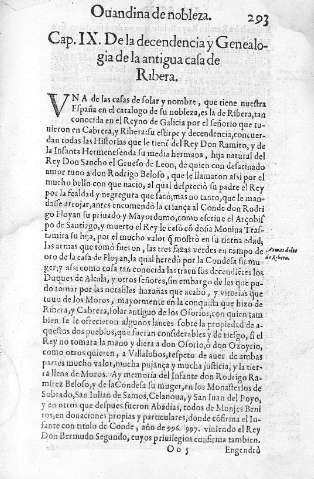 Ouandina de nobleza. 293
Cap. IX. De la decendencia y Genealo-
gia de la antigua casa de
Ribera.
VNA de las casas de solar y nombre, que tiene nuestra
España en el catalogo de su nobleza, es la de Ribera, tan
conocida en el Reyno de Galicia por el señorio que tu-
uieron en Cabrera, y Ribera: su estirpe y decendencia, concuer-
dan todas las Historias que le tiene del Rey Don Ramiro, y de
la Infanta Hermesenda su media hermana, hija natural del
Rey Don Sancho el Grueso de Leon, de quien con desatinado
amor tuuo a don Rodrigo Beloso, que le llamaron assi por el
mucho bello con que nacio, al qual despreciò su padre el Rey
por la fealdad y negregura que saco, mas no tanto, que le man-
dasse arrojar, antes encomendò la criança al Conde don Rodri
go Floyan su priuado y Mayordomo, como escriue el Arçobis
po de Santiago, y muerto el Rey le casò cõ doña Monina Tras-
tamira su hija, por el mucho valor q̃ mostrò en su tierna edad,
las armas que tomò fueron, las tres faxas verdes en campo de
oro de la casa de Floyan, la qual heredò por la Condesa su mu-
ger, y assi como cosa tan conocida las traen sus decendientes los
Duques de Alcala, y otros señores, sin embargo de los que pu-
do tomar por las notables hazañas que acabò, y vitorias que
tuuo de los Moros, mayormente en la conquista que hizo de
Ribera, y Cabrera, solar antiguo de los Osorios, con quien tam
bien se le ofrecieron algunos lances sobre la propiedad de a-
questos dos pueblos, que fueran considerables y de riesgo, si el
Rey no tomara la mano y diera a don Osorio, ò don Ozoycio,
como otros quieren, a Villalobos, respeto de auer de ambas
partes mucho valor, mucha pujança y mucha justicia, y la tier-
ra llena de Moros. Ay memoria del Infante don Rodrigo Ra-
mirez Beloso, y de la Condesa su muger, en los Monasterios de
Sobrado, San Iulian de Samos, Celanoua, y San Iuan del Poyo,
y en otros que despues fueron Abadias, todos de Monjes Beni
tos, en donaciones propias y particulares, donde cõfirma el In-
fante con titulo de Conde, año de 996. 997. viniendo el Rey
Don Bermudo Segundo, cuyos priuilegios confirma tambien.
Oo 5 Engendrò
Armas de los
de Ribera.